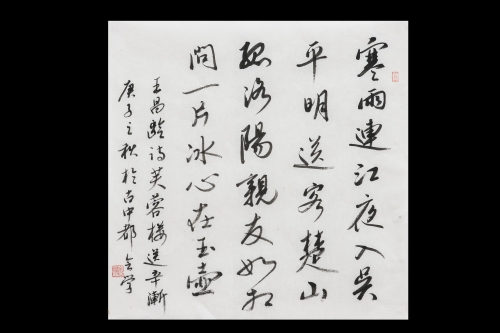 寒雨連江夜入吴
平明送客楚山
孤洛陽親友如相
問一片冰心在玉壺
王昌龄诗芙蓉楼送辛漸
庚子之秋於古中都